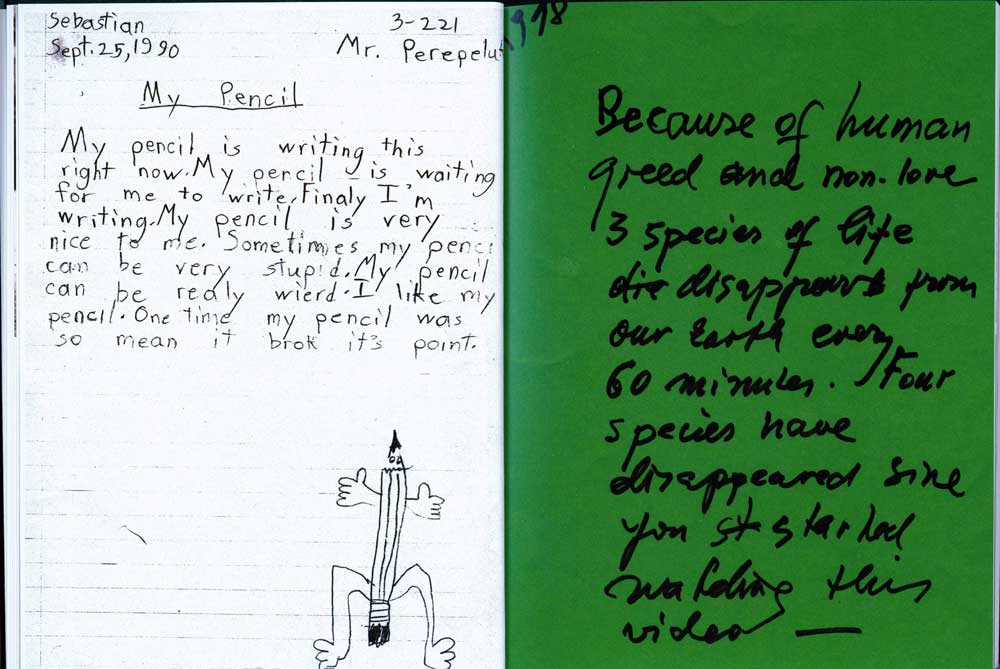 Sebastian
Sept. 25, 1990
3-221
Mr. Perepelut
My Pencil
My pencil is writing this
right now. My pencil is waiting
for me to write. Finaly I'm
writing. My pencil is very
nice to me. Sometimes my penc
can be very stupid. My pencil
can be realy wierd. I like my
pencil. One time my pencil was
so mean it brok it's point.
Because of human
greed and non-love
3 species of life
die disappears from
our Earth every
60 minutes. Four
species have
disappeared sine
you st started
watching this
video —